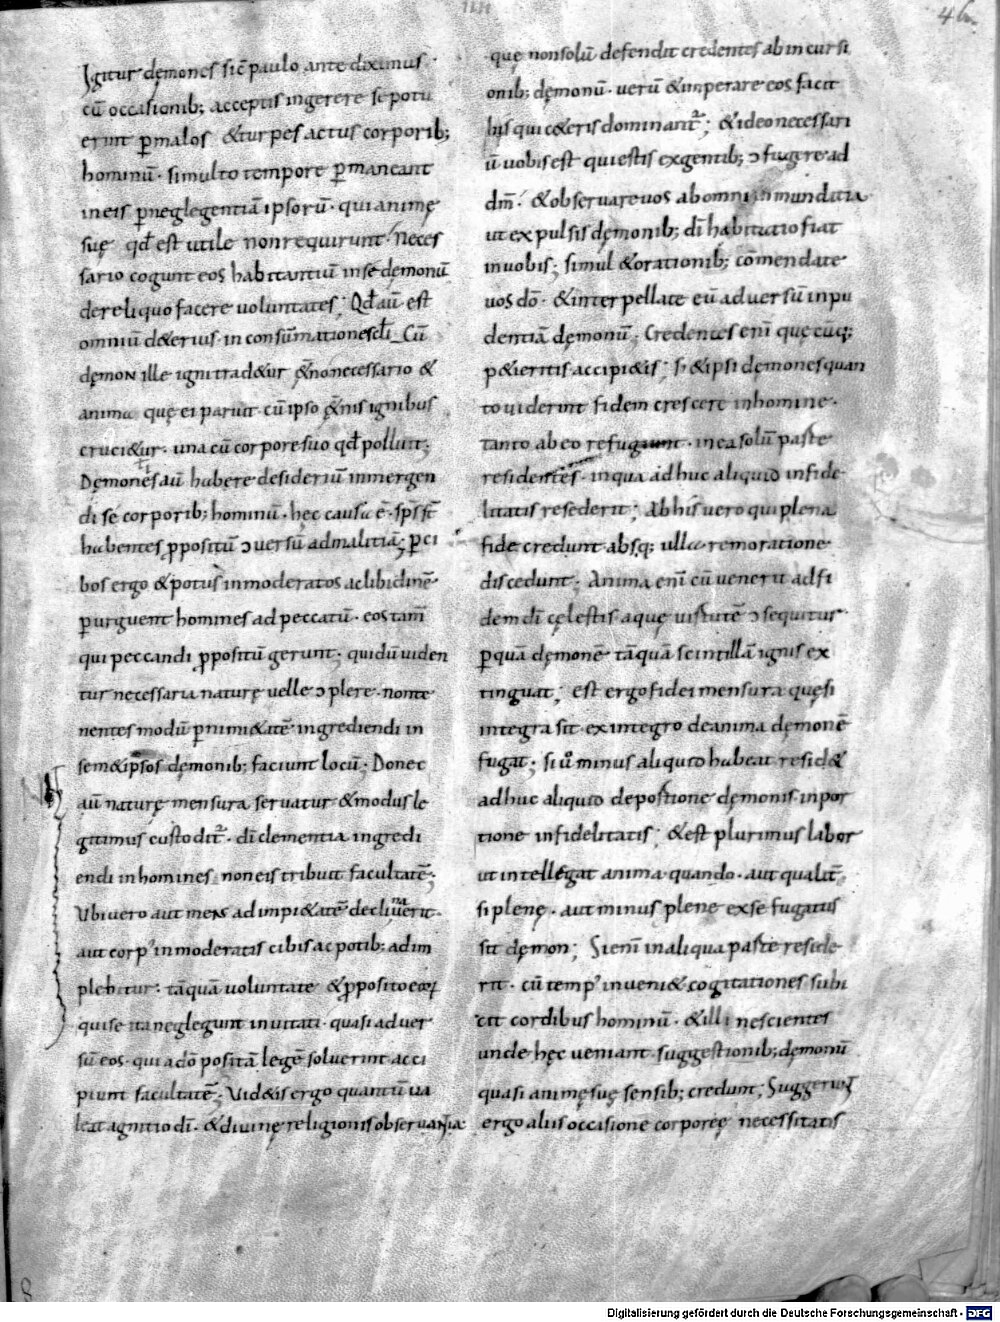 46
Igitur dęmones sic̄ paulo ante diximus ·
cū occasionib; acceptis ingerere se potu
erint p̄ malos · &turpes actus corporib;
hominū · si multo tempore p̄maneant
in eis p̄neglegentiā ipsorū · qui animę
suę qđ est utile non requirunt · neces
sario cogunt eos habitantiū in se dęmonū
de reliquo facere voluntates; Qđ aū est
omniū d&erius · in consūmatione scłi_ Cū
dęmon ille igni trad&ur & non necessario &
anima quę ei paruit cū ipso ignibus
cruci&ur · una cū corpore suo qđ polluit;
Dęmones aū habere desideriū inmergen
di se corporib; hominū · hęc causa ē · sp̄s st̄
habentes p̱positū ɔuersū ad malitiā; p̄ ci
bos ergo & potus inmoderatos ac libidinē
p̄urguent homines ad peccatū · eos tam̄
qui peccandi p̱positū gerunt · qui dū uiden
tur necessaria naturę uelle ɔplere · non te
nentes modū p̄ nimi&atē · ingrediendi in
sem&ipsos dęmonib; faciunt locū; Donec
aū naturę mensura seruatur & modus le
gitimus custodit᷑ · dī clementia ingredi
endi in homines non eis tribuit facultatē;
Vbi uero aut mens ad impi&atē declinauerit ·
aut corp᾽ inmoderatis cibis ac potib; adim
plebitur · tāquā uoluntate & p̱posito eoꝝ
qui se ita neglegunt inuitati · quasi aduer
sū eos · qui a dō positā legē soluerint acci
piunt facultatē; Vid&is ergo quantū ua
leat agnitio dī · & diuinę religionis obseruantia
quę non solū defendit credentes ab incursi
onib; dęmonū · uerū & imperare eos facit
his qui c&eris dominant᷑; & ideo necessari
ū uobis est qui estis ex gentib; ɔfugere ad
dm̄ · & obseruare uos ab omni inmunditia
ut expulsis dęmonib; dī habitatio fiat
in uobis; simul & orationib; cōmendate
uos dō · & interpellate eū aduersū inpu
dentiā dęmonū · Credentes enī quęcūq;
p&ieritis accipi&is; s; & ipsi dęmones quan
to uiderint fidem crescere in homine ·
tanto ab eo refugiunt · in ea solū parte
residentes · in qua adhuc aliquid infide
litatis resederit; Ab his uero qui plena
fide credunt absq; ulla remoratione
discedunt; Anima enī cū uenerit ad fi
dem dī cęlestis aquę uirtutē ɔsequitur
p̄ quā dęmonē tāquā scintillā ignis ex
tinguat; est ergo fidei mensura quę si
integra sit · ex integro de anima dęmonē
fugat; si ů minus aliquid habeat resid&
adhuc aliquid de portione dęmonis in por
tione infidelitatis; & est plurimus labor
ut intellegat anima quando · aut qualit᷑
si plenę · aut minus plene ex se fugatus
sit dęmon; Si enī in aliqua parte resede
rit · cū temp᾽ inueni& cogitationes subi
cit cordibus hominū · & illi nescientes
unde hęc ueniant suggestionib; dęmonū
quasi animę suę sensib; credunt; Suggerunt
ergo aliis occasione corporeę necessitatis
Digitalisierung gefördert durch die Deutsche Forschungsgemeinschaft - DFG